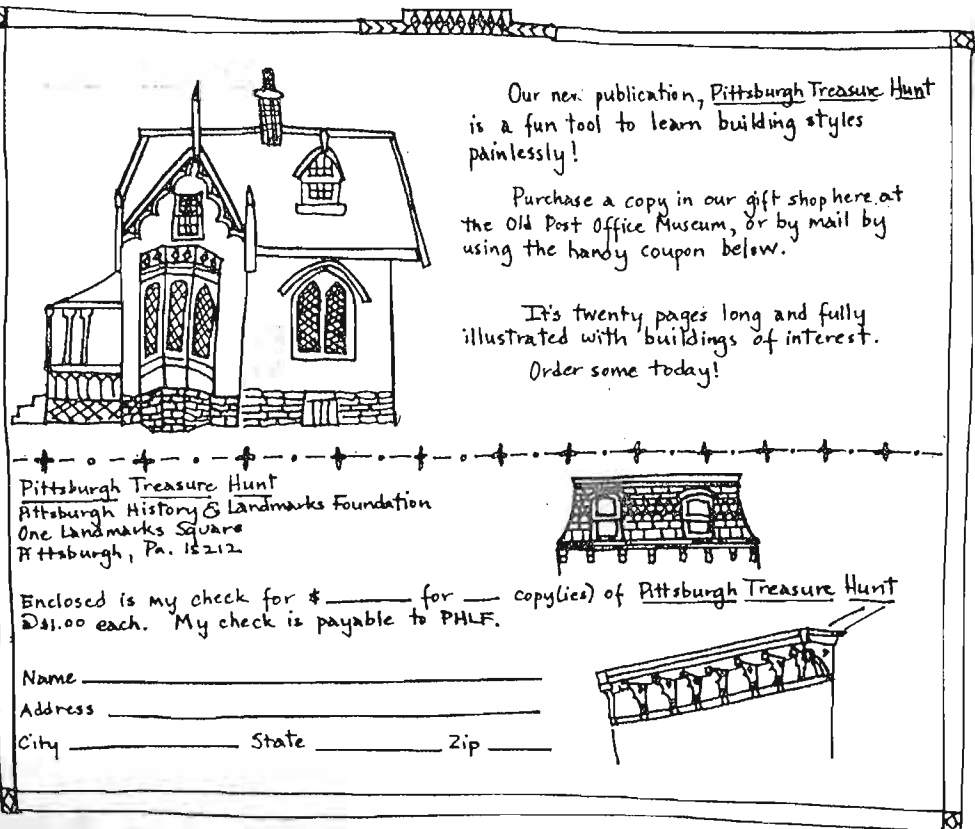 Our new publication, Pittsburgh Treasure Hunt
is a fun tool to learn building styles
painlessly!
Purchase a copy in our gift shop here at
the Old Post Office Museum, or by mail by
using the handy coupon below.
It's twenty pages long and fully
illustrated with buildings of interest.
Order some today!
Pittsburgh Treasure Hunt
Pittsburgh History & Landmarks Foundation
One Landmarks Square
Pittsburgh, Pa. 15212
Enclosed is my check for $ ______ for ___ copy(ies) of Pittsburgh Treasure Hunt
@$1.00 each. My check is payable to PHLF.
Name
Address
City ______ State ______ Zip ____